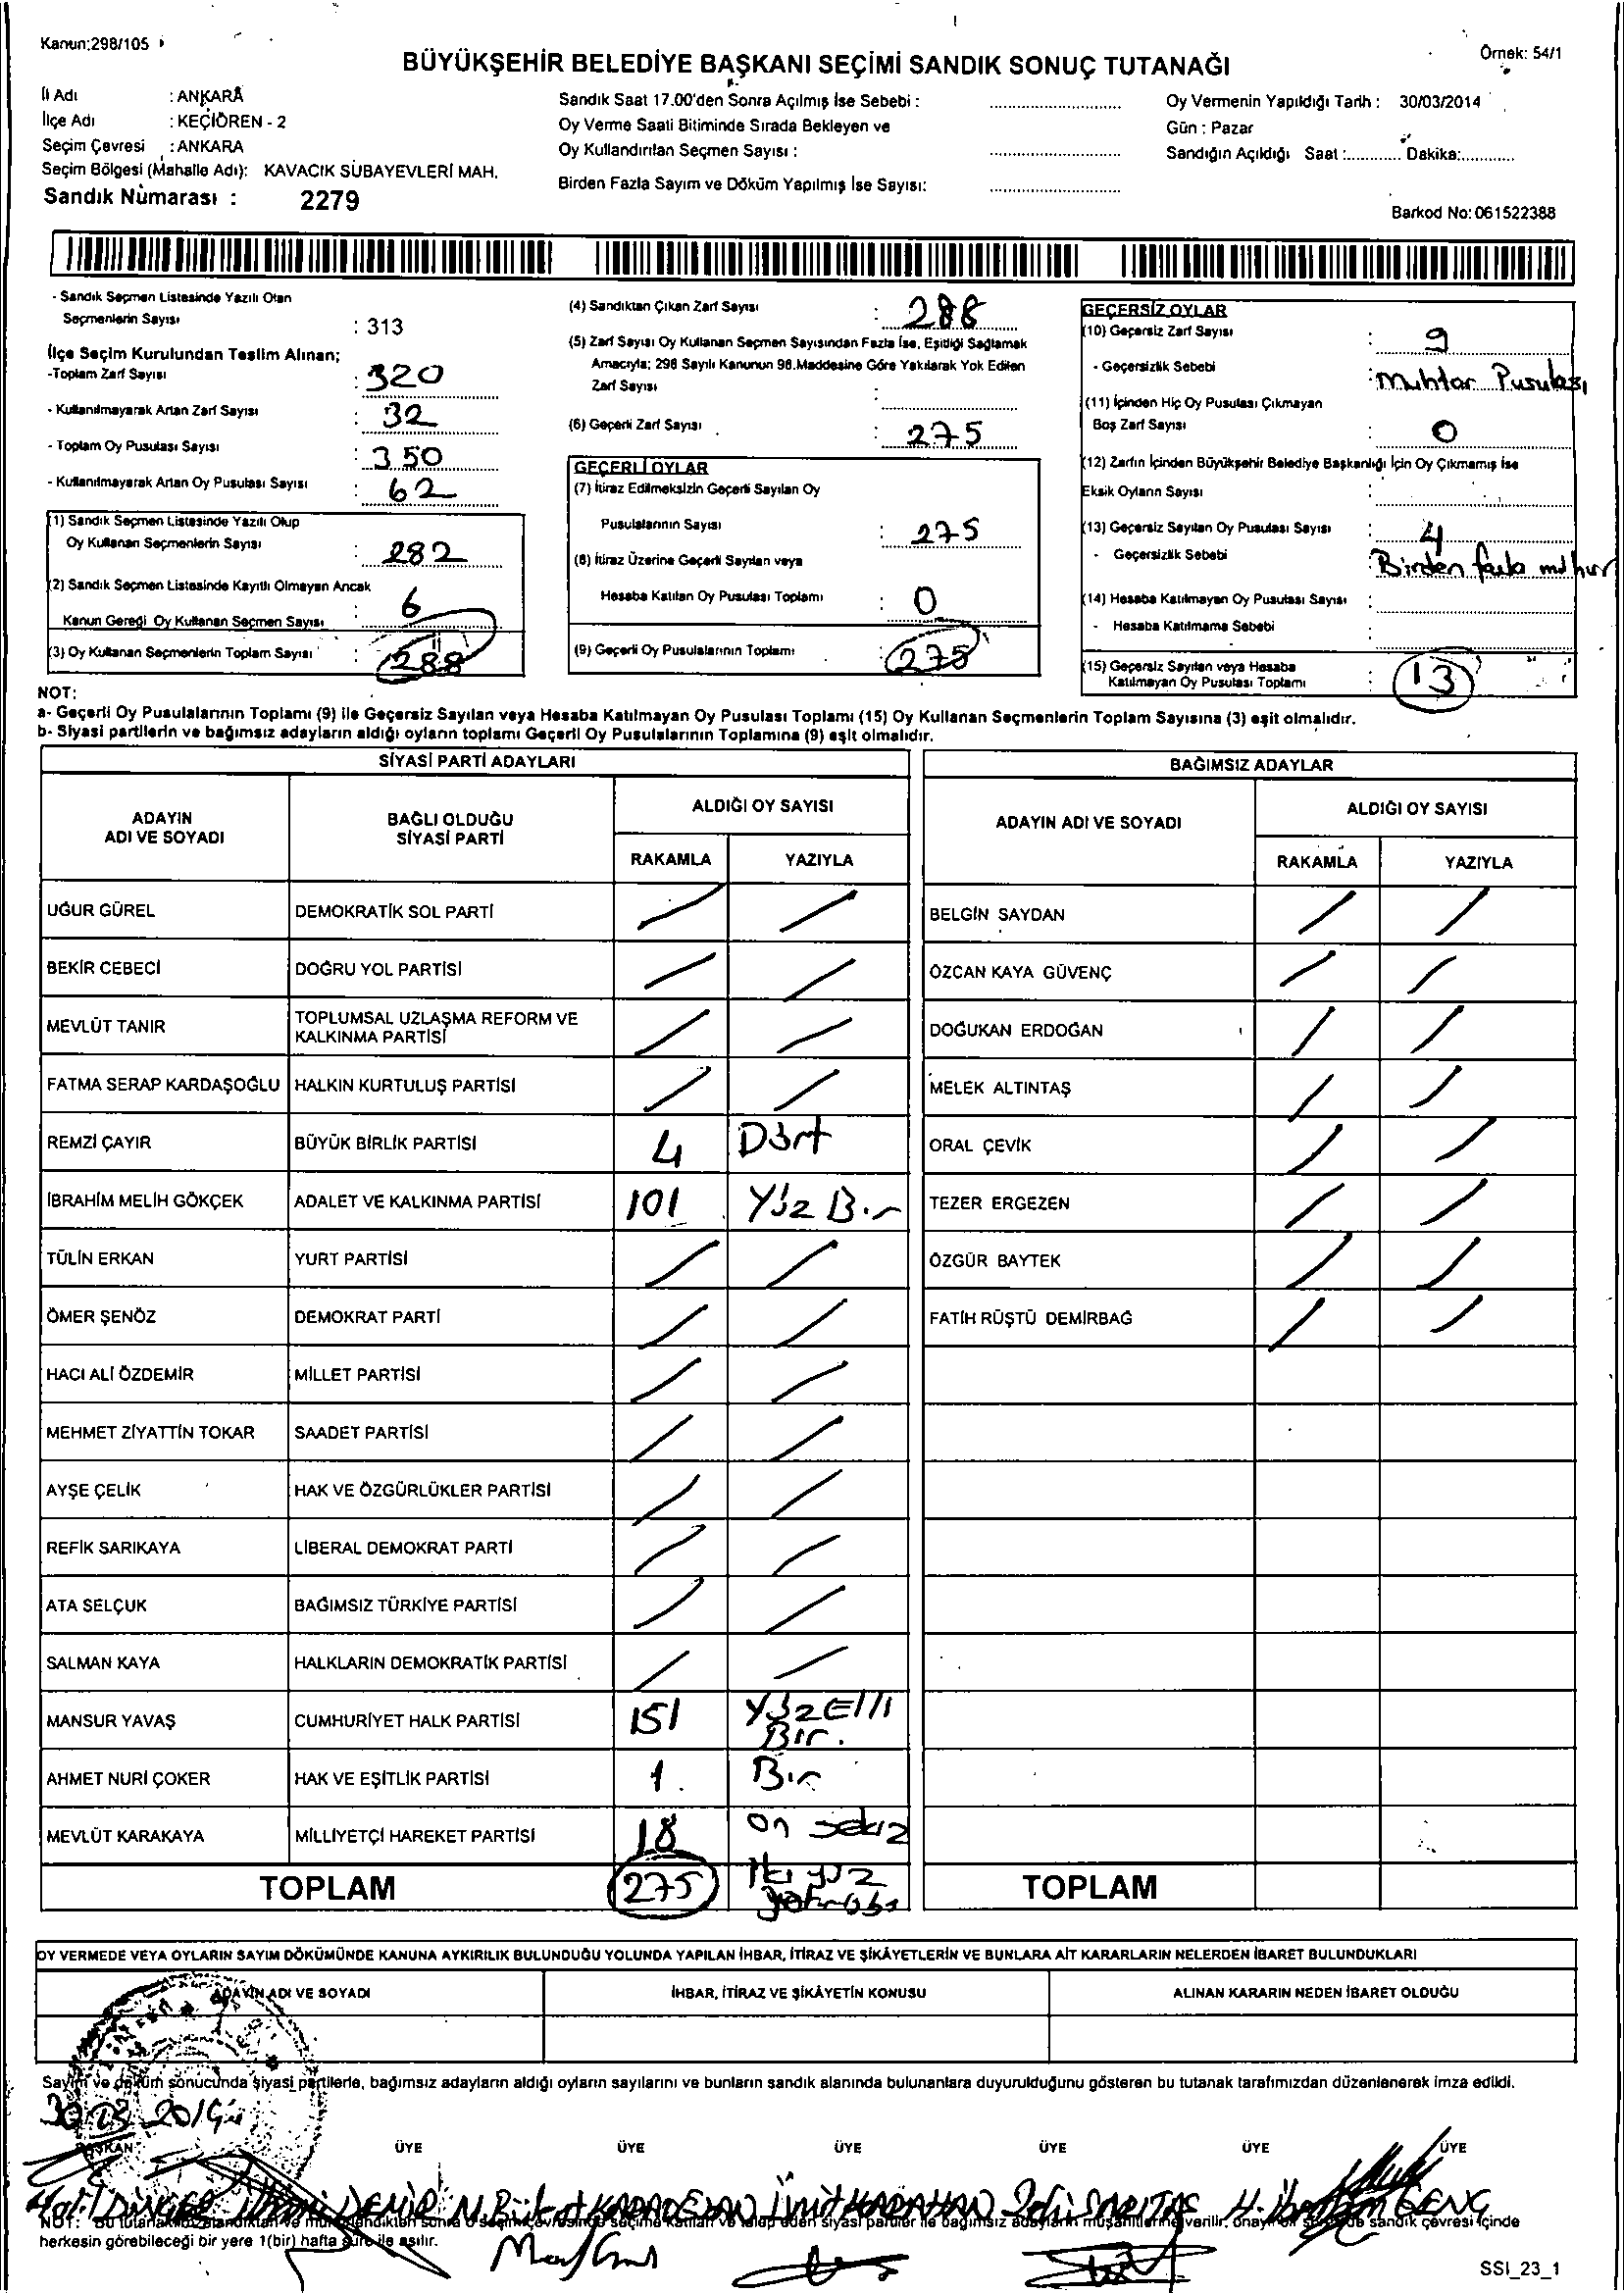 Kanun:298/105
Örnek: 54/1
BÜYÜKŞEHİR BELEDİYE BAŞKANI SEÇİMİ SANDIK SONUÇ TUTANAĞI
İl Adı : ANKARA
İlçe Adı : KEÇİÖREN - 2
Seçim Çevresi : ANKARA
Seçim Bölgesi (Mahalle Adı): KAVACIK SUBAYEVLERİ MAH.
Sandık Numarası : 2279
Sandık Saat 17.00'den Sonra Açılmış İse Sebebi :
Oy Verme Saati Bitiminde Sırada Bekleyen ve
Oy Kullandırılan Seçmen Sayısı :
Birden Fazla Sayım ve Döküm Yapılmış İse Sayısı:
Oy Vermenin Yapıldığı Tarih : 30/03/2014
Gün : Pazar
Sandığın Açıldığı Saat :............ Dakika:............
Barkod No: 061522388
- Sandık Seçmen Listesinde Yazılı Olan
Seçmenlerin Sayısı : 313
İlçe Seçim Kurulundan Teslim Alınan;
-Toplam Zarf Sayısı : 320
- Kullanılmayarak Artan Zarf Sayısı : 32
- Toplam Oy Pusulası Sayısı : 350
- Kullanılmayarak Artan Oy Pusulası Sayısı : 62
(1) Sandık Seçmen Listesinde Yazılı Olup
Oy Kullanan Seçmenlerin Sayısı : 282
(2) Sandık Seçmen Listesinde Kayıtlı Olmayan Ancak
Kanun Gereği Oy Kullanan Seçmen Sayısı : 6
(3) Oy Kullanan Seçmenlerin Toplam Sayısı : 288
(4) Sandıktan Çıkan Zarf Sayısı : 288
(5) Zarf Sayısı Oy Kullanan Seçmen Sayısından Fazla İse, Eşitliği Sağlamak
Amacıyla; 298 Sayılı Kanunun 98.Maddesine Göre Yakılarak Yok Edilen
Zarf Sayısı :
(6) Geçerli Zarf Sayısı : 275
GEÇERLİ OYLAR
(7) İtiraz Edilmeksizin Geçerli Sayılan Oy
Pusulalarının Sayısı : 275
(8) İtiraz Üzerine Geçerli Sayılan veya
Hesaba Katılan Oy Pusulası Toplamı : 0
(9) Geçerli Oy Pusulalarının Toplamı : 275
GEÇERSİZ OYLAR
(10) Geçersiz Zarf Sayısı : 9
- Geçersizlik Sebebi : Muhtar Pusulası
(11) İçinden Hiç Oy Pusulası Çıkmayan
Boş Zarf Sayısı : 0
(12) Zarfın İçinden Büyükşehir Belediye Başkanlığı İçin Oy Çıkmamış İse
Eksik Oyların Sayısı :
(13) Geçersiz Sayılan Oy Pusulası Sayısı : 4
- Geçersizlik Sebebi : Birden fazla mühür
(14) Hesaba Katılmayan Oy Pusulası Sayısı :
- Hesaba Katılmama Sebebi :
(15) Geçersiz Sayılan veya Hesaba
Katılmayan Oy Pusulası Toplamı : 13
NOT:
a- Geçerli Oy Pusulalarının Toplamı (9) ile Geçersiz Sayılan veya Hesaba Katılmayan Oy Pusulası Toplamı (15) Oy Kullanan Seçmenlerin Toplam Sayısına (3) eşit olmalıdır.
b- Siyasi partilerin ve bağımsız adayların aldığı oyların toplamı Geçerli Oy Pusulalarının Toplamına (9) eşit olmalıdır.
SİYASİ PARTİ ADAYLARI
ADAYIN ADI VE SOYADI
BAĞLI OLDUĞU SİYASİ PARTİ
ALDIĞI OY SAYISI
RAKAMLA YAZIYLA
UĞUR GÜREL DEMOKRATİK SOL PARTİ / /
BEKİR CEBECİ DOĞRU YOL PARTİSİ / /
MEVLÜT TANIR TOPLUMSAL UZLAŞMA REFORM VE KALKINMA PARTİSİ / /
FATMA SERAP KARDAŞOĞLU HALKIN KURTULUŞ PARTİSİ / /
REMZİ ÇAYIR BÜYÜK BİRLİK PARTİSİ 4 Dört
İBRAHİM MELİH GÖKÇEK ADALET VE KALKINMA PARTİSİ 101 Yüz Bir
TÜLİN ERKAN YURT PARTİSİ / /
ÖMER ŞENÖZ DEMOKRAT PARTİ / /
HACI ALİ ÖZDEMİR MİLLET PARTİSİ / /
MEHMET ZİYATTİN TOKAR SAADET PARTİSİ / /
AYŞE ÇELİK HAK VE ÖZGÜRLÜKLER PARTİSİ / /
REFİK SARIKAYA LİBERAL DEMOKRAT PARTİ / /
ATA SELÇUK BAĞIMSIZ TÜRKİYE PARTİSİ / /
SALMAN KAYA HALKLARIN DEMOKRATİK PARTİSİ / /
MANSUR YAVAŞ CUMHURİYET HALK PARTİSİ 151 Yüz Elli Bir.
AHMET NURİ ÇOKER HAK VE EŞİTLİK PARTİSİ 1. Bir
MEVLÜT KARAKAYA MİLLİYETÇİ HAREKET PARTİSİ 18 On sekiz
TOPLAM 275 İki yüz yetmişbeş
BAĞIMSIZ ADAYLAR
ADAYIN ADI VE SOYADI
ALDIĞI OY SAYISI
RAKAMLA YAZIYLA
BELGİN SAYDAN / /
ÖZCAN KAYA GÜVENÇ / /
DOĞUKAN ERDOĞAN / /
MELEK ALTINTAŞ / /
ORAL ÇEVİK / /
TEZER ERGEZEN / /
ÖZGÜR BAYTEK / /
FATİH RÜŞTÜ DEMİRBAĞ / /
TOPLAM
OY VERMEDE VEYA OYLARIN SAYIM DÖKÜMÜNDE KANUNA AYKIRILIK BULUNDUĞU YOLUNDA YAPILAN İHBAR, İTİRAZ VE ŞİKÂYETLERİN VE BUNLARA AİT KARARLARIN NELERDEN İBARET BULUNDUKLARI
ADAYIN ADI VE SOYADI
İHBAR, İTİRAZ VE ŞİKÂYETİN KONUSU
ALINAN KARARIN NEDEN İBARET OLDUĞU
Sayım ve döküm sonucunda siyasi partilerle, bağımsız adayların aldığı oyların sayılarını ve bunların sandık alanında bulunanlara duyurulduğunu gösteren bu tutanak tarafımızdan düzenlenerek imza edildi.
30 03 2014
BAŞKAN ÜYE ÜYE ÜYE ÜYE ÜYE ÜYE
DEMİR Ümit KARAHAN GENÇ
herkesin görebileceği bir yere 1(bir) hafta süre ile asılır.
SSI_23_1